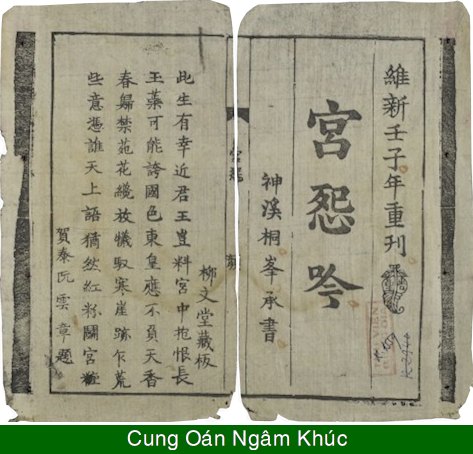 維新壬子年重刊
宮怨吟
神溪桐峯承書
宮怨
柳文堂藏板
此生有幸近君王豈料宮中抱恨長
王蘂可能誇國色東皇應不負天香
春歸禁苑花纔放犧馭寒崖跡乍荒
些意憑誰天上語猶然紅粉鬪宮粧
賀秦阮雲章題
Cung Oán Ngâm Khúc